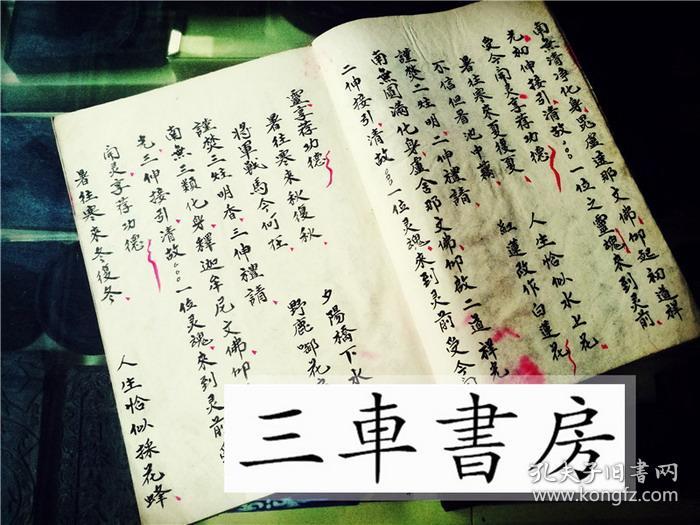 南無清淨化身毘盧遮那文佛仰起初道祥
光初伸接引清故一位之靈魂來到灵前
受今南灵享荐功德
暑往寒來夏復夏
人生恰似水上花
不信但看池中藕
紅蓮改作白蓮花
謹焚二炷明二伸禮請
南無圓滿化身盧舍那文佛仰啟二道祥光
二伸接引清故一位灵魂來到灵前受今
靈享荐功德
暑往寒來秋復秋
夕陽橋下水
將軍戰馬今何在
野鹿啣花
謹焚三炷明香三伸禮請
南無三類化身釋迦牟尼文佛仰
光三伸接引清故一位灵魂來到灵前
南灵享荐功德
暑往寒來冬復冬
人生恰似採花蜂
三車書房
孔夫子旧书网
www.kongfz.com